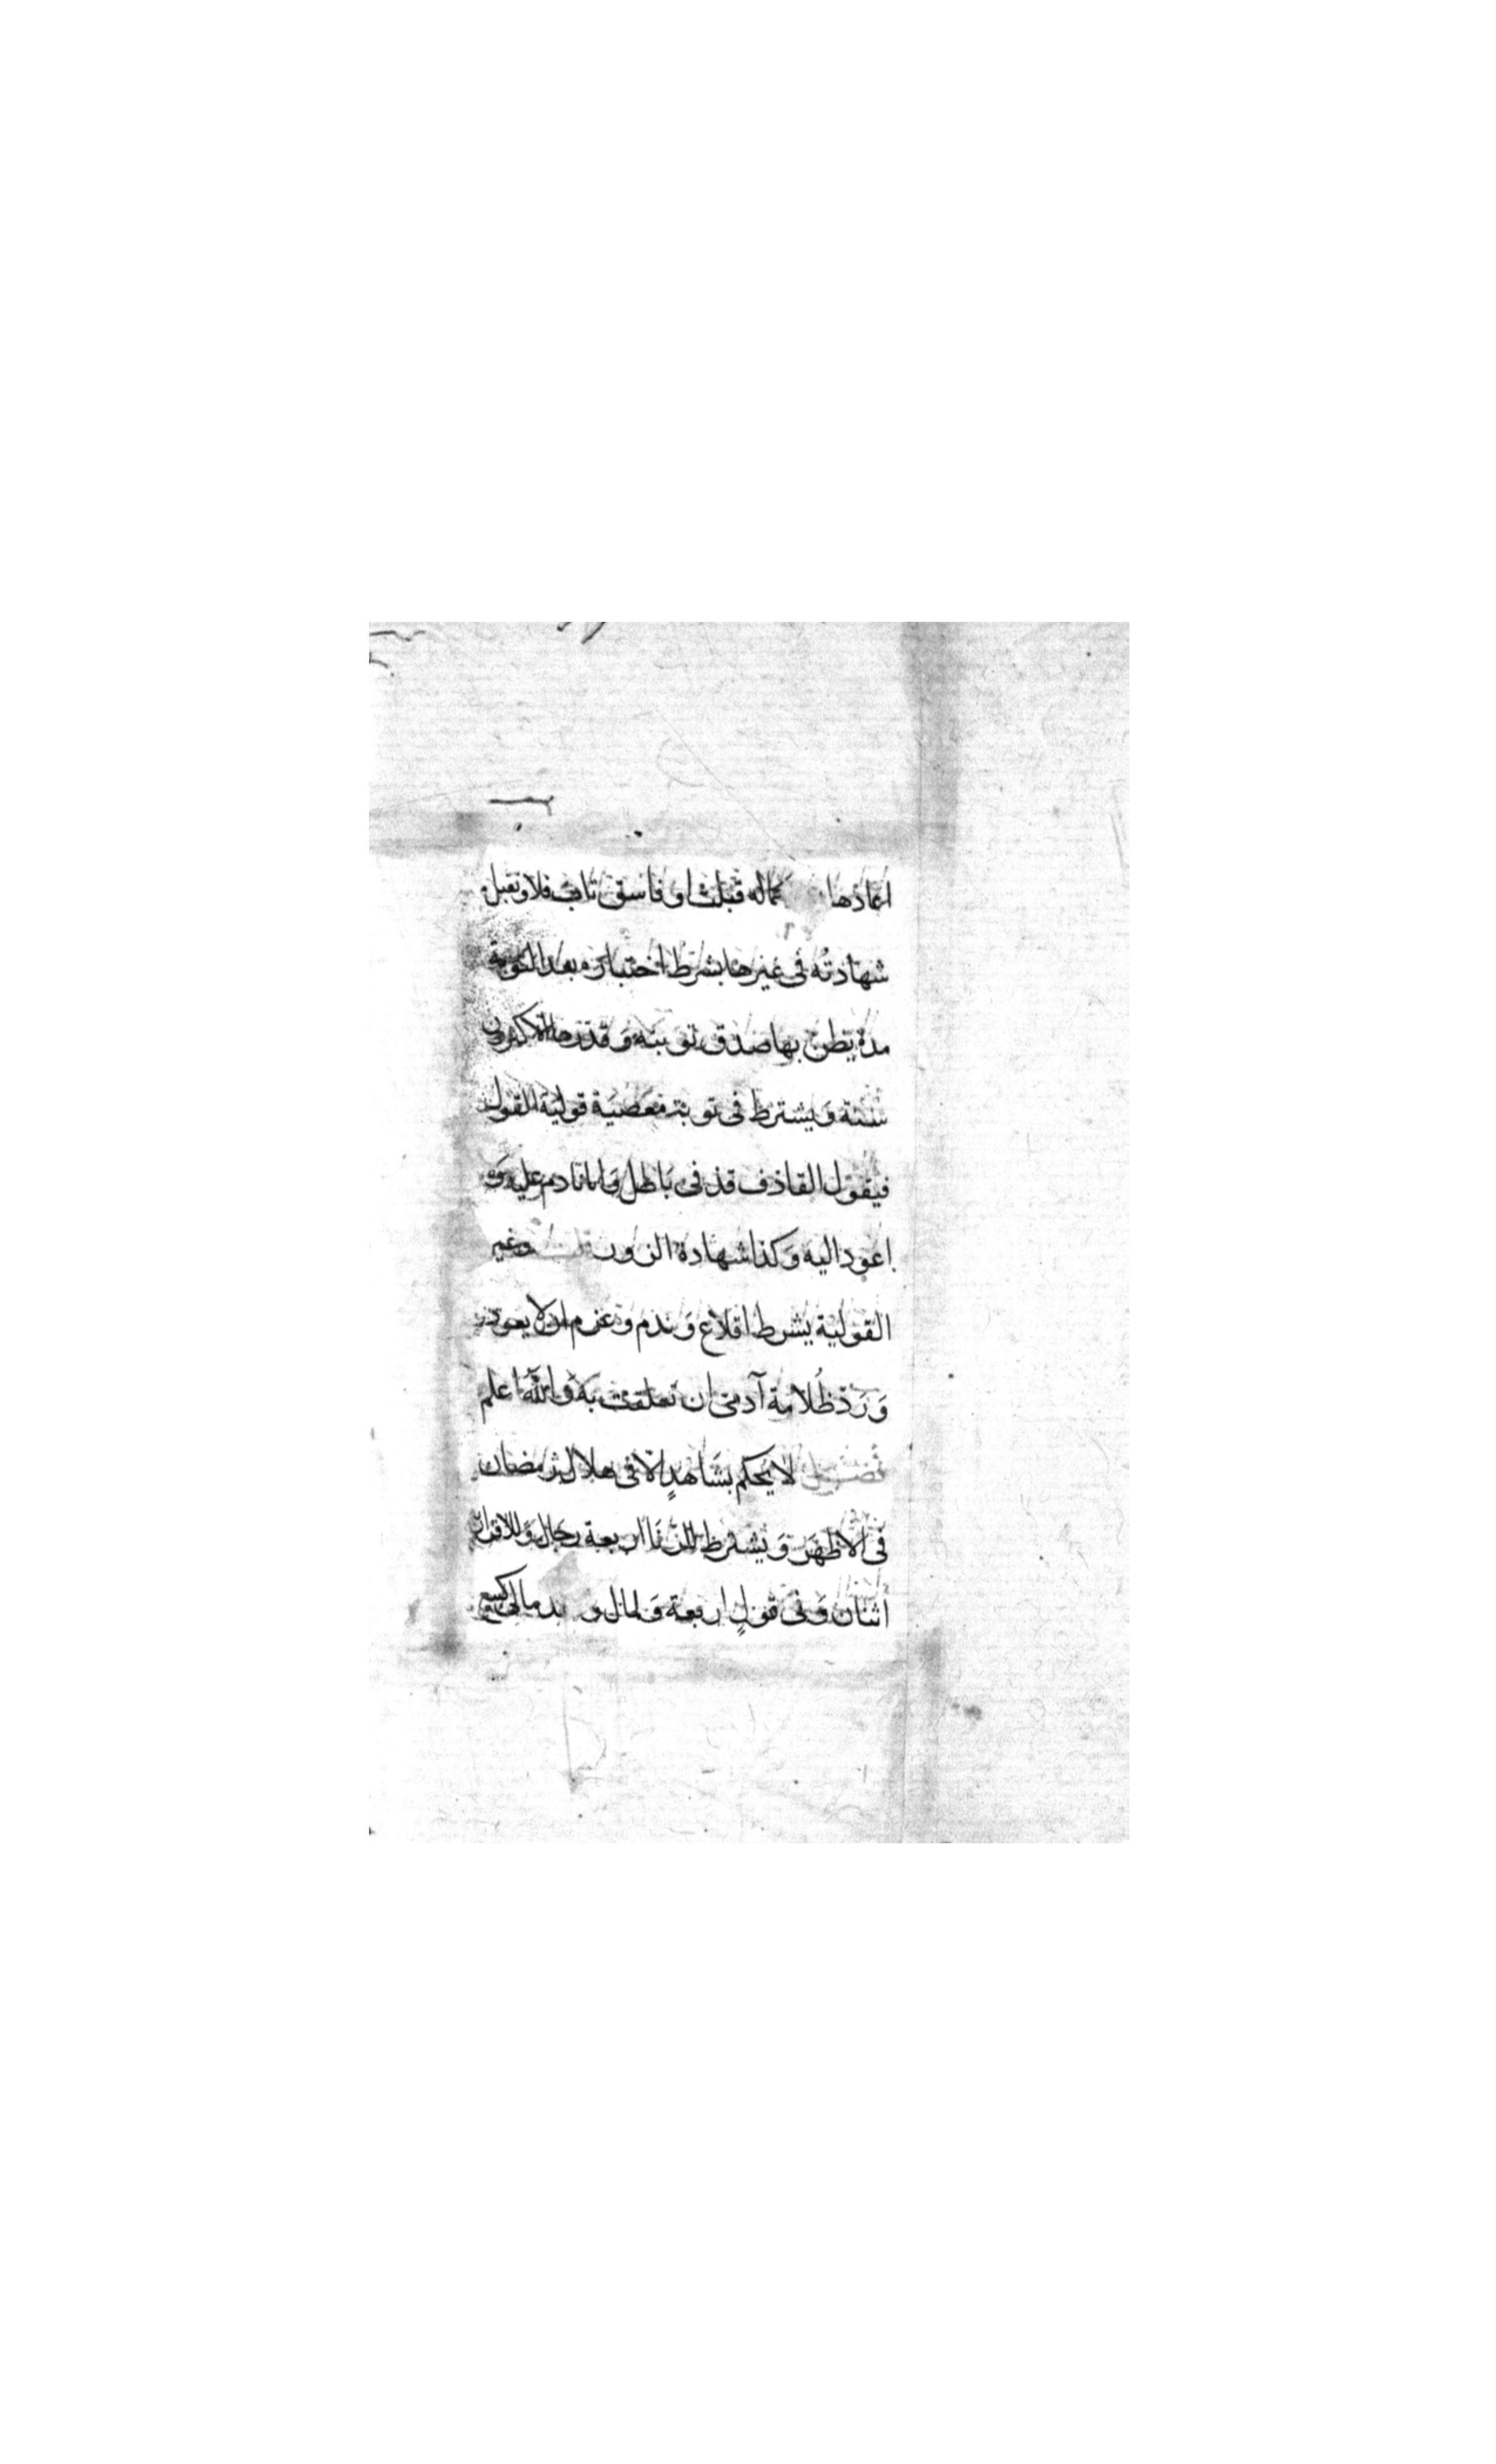 اعادها كماله قبلت او فاسق تاب فلا وتقبل
شهادته فى غيرها بشرط اختباره بعد التوبة
مدة يظن بها صدق توبته وَقدرها الاكثرون
سنة وَيشترط فى توبة معصية قولية القول
فيقول القاذف قذفى بَاطل وَانا نادم عليه وَ
اعود اليه وَكذا شهادة الزور وغير
القولية يشرط اقلاع وَندم وَعزم ان لا يعود
وَرَدّ ظُلامة آدمى ان تعلقت به وَالله اعلم
فصل لا يحكم بشَاهدٍ الا فى هلال رمضان
فى الاظهَر وَيشترط للزنَا اربعة رجَال وَللاقرار
اثنان وَفى قولٍ اربعة وَلمال و مالى كبيع